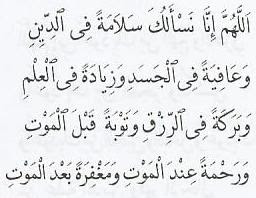 اَللّٰهُمَّ إِنَّا نَسْأَلُكَ سَلَامَةً فِى ٱلدِّينِ
وَعَافِيَةً فِى ٱلْجَسَدِ وَزِيَادَةً فِى ٱلْعِلْمِ
وَبَرَكَةً فِى ٱلرِّزْقِ وَتَوْبَةً قَبْلَ ٱلْمَوْتِ
وَرَحْمَةً عِنْدَ الْمَوْتِ وَمَغْفِرَةً بَعْدَ الْمَوْتِ